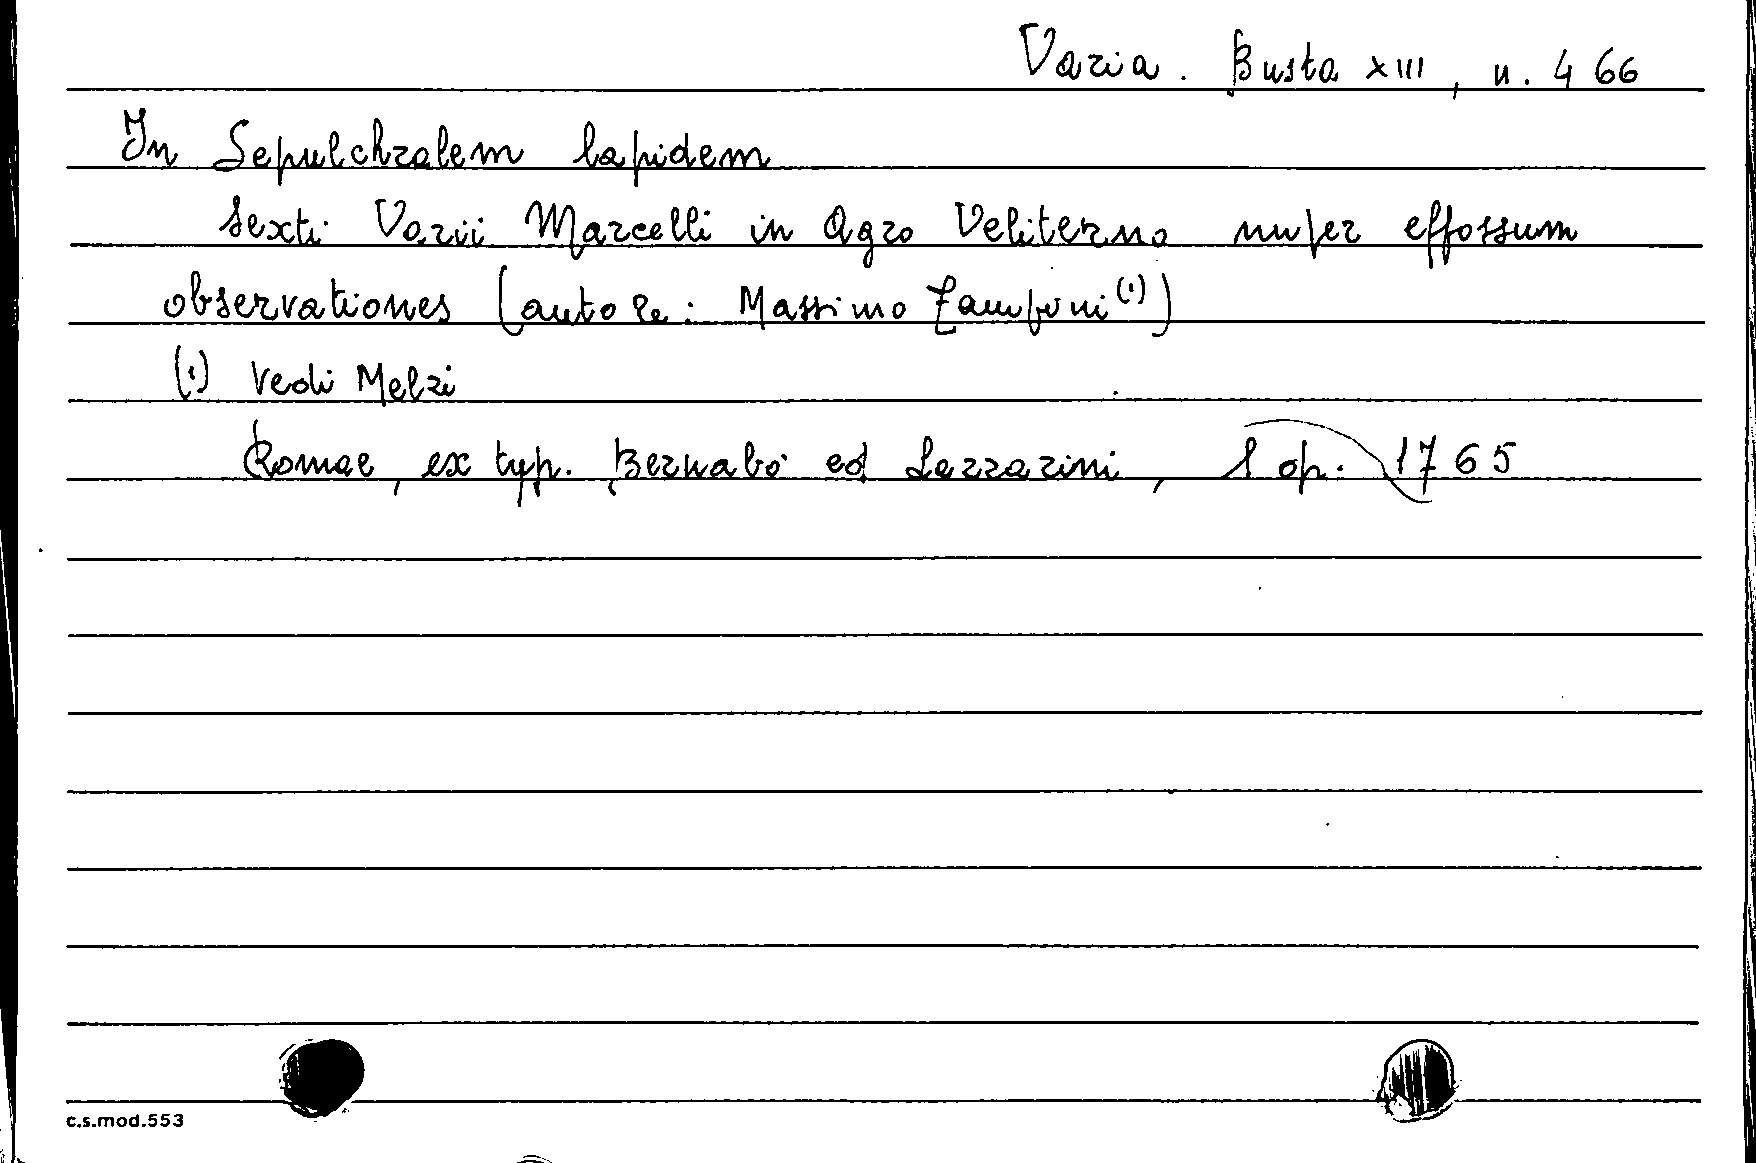 Varia. Busta XIII, n. 466
In Sepulchralem lapidem
Sexti Varii Marcelli in Agro Veliterno nuper effossum
observationes (autore: Massimo Zamponi (1))
(1) Vedi Melzi
Romae, ex typ. Bernabò ed Lazzarini, 1 op. 1765
c.s.mod.553